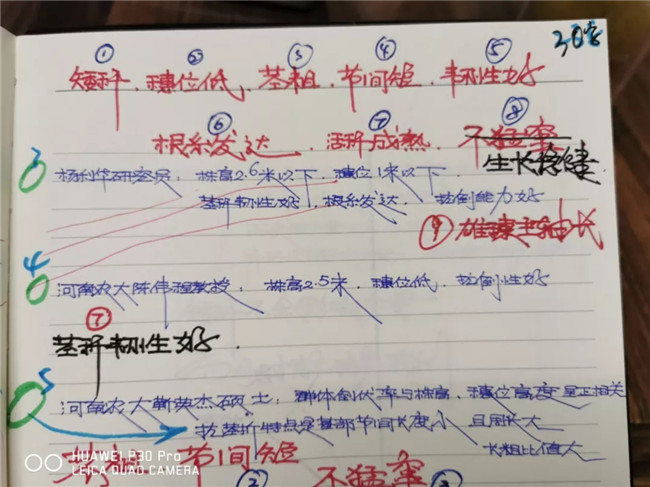 ① ② ③ ④ ⑤
矮秆、穗位低、茎粗、节间短、韧性好
⑥ ⑦ ⑧
根系发达、活秆成熟、不猛窜
生长稳健
3 杨利华研究员: 株高2.6米以下、穗位1米以下、
茎秆韧性好、根系发达、抗倒能力好
⑨雄穗主轴长
4
河南农大陈伟程教授: 株高2.5米、穗位低、抗倒性好
⑦
茎秆韧性好.
5
河南农大靳英杰硕士: 群体倒伏率与株高、穗位高度呈正相关
抗茎折特点是基部节间长度小 且周长大
长粗比值大
节间短 不猛窜
HUAWEI P30 Pro
LEICA QUAD CAMERA